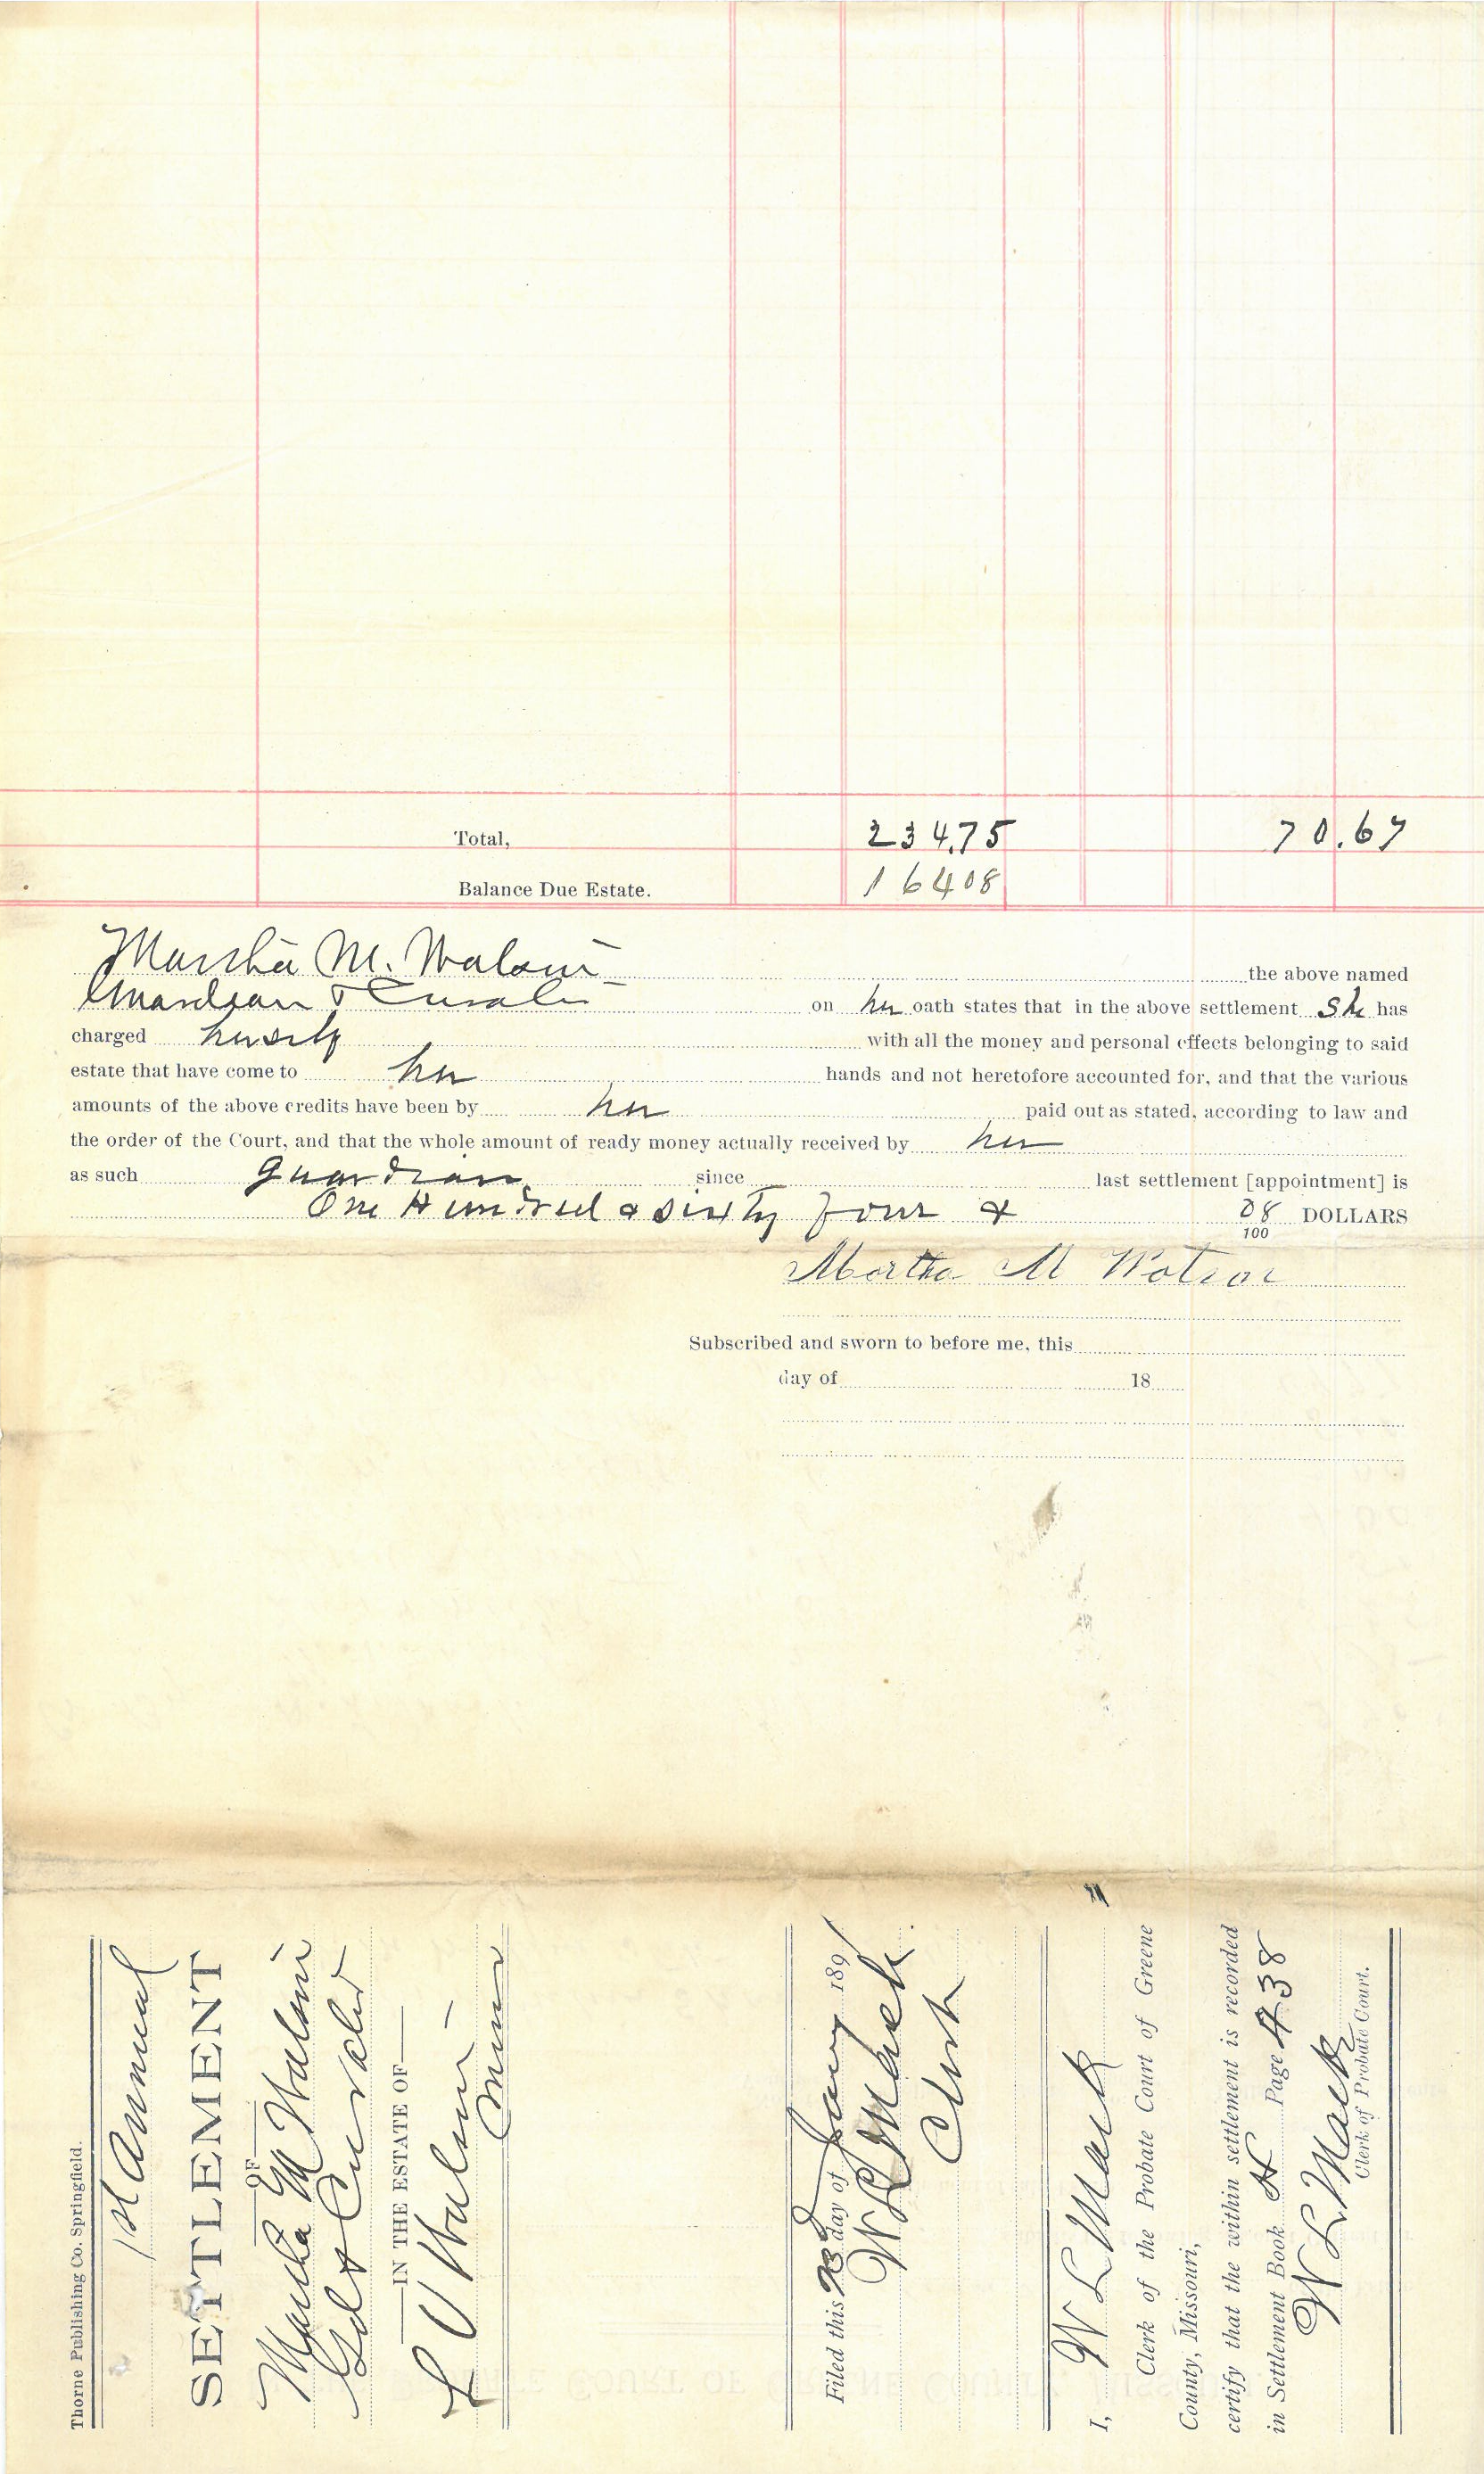 Total, 234.75 70.67
Balance Due Estate. 164 08
Martha M. Watson the above named
Guardian & Curator on her oath states that in the above settlement She has
charged herself with all the money and personal effects belonging to said
estate that have come to her hands and not heretofore accounted for, and that the various
amounts of the above credits have been by her paid out as stated, according to law and
the order of the Court, and that the whole amount of ready money actually received by her
as such Guardian since last settlement [appointment] is
One Hundred & sixty four & 08 DOLLARS
100
Martha M Watson
Subscribed and sworn to before me, this
day of 18
Thorne Publishing Co. Springfield.
1st Annual
SETTLEMENT
OF
Martha M Watson
Gd & Curator
IN THE ESTATE OF
L V Watson
Minor
Filed this 23 day of Jany 1891
W L Mack
Clerk
I, W L Mack
Clerk of the Probate Court of Greene
County, Missouri,
certify that the within settlement is recorded
in Settlement Book N Page 438
W L Mack
Clerk of Probate Court.